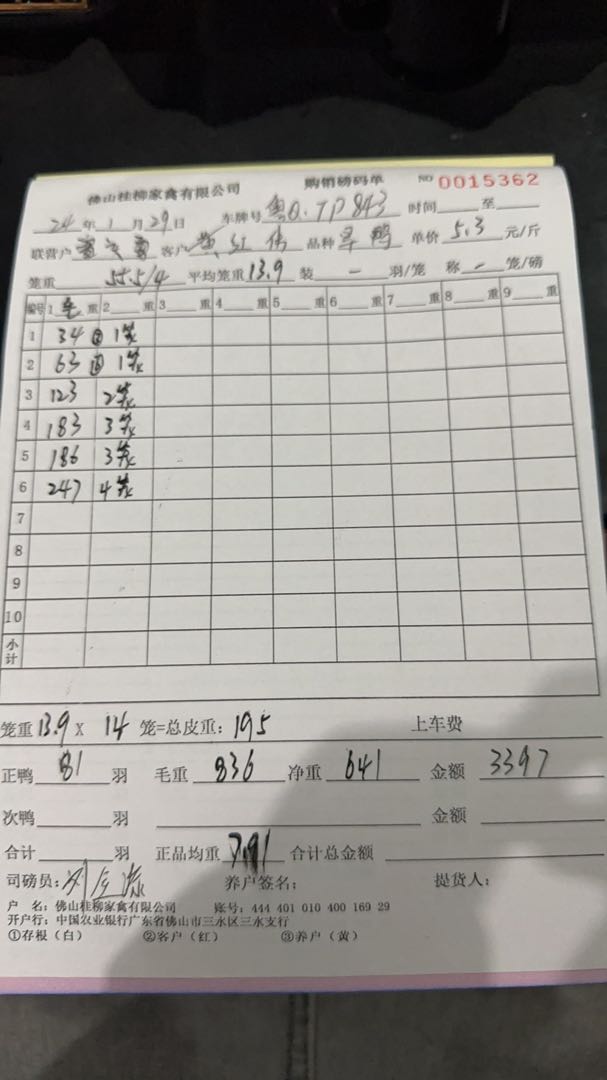 佛山桂柳家禽有限公司 购销磅码单 NO 0015362
24年1月29日 车牌号粤Q.TP843 时间 至
联营户 客户黄红伟 品种旱鸭 单价5.3元/斤
笼重55.5/4 平均笼重13.9 装-羽/笼 称-笼/磅
编号 1毛重 2 重 3 重 4 重 5 重 6 重 7 重 8 重 9 重
1 34 1笼
2 63 1笼
3 123 2笼
4 183 3笼
5 186 3笼
6 247 4笼
7
8
9
10
小计
笼重13.9 X 14笼=总皮重：195 上车费
正鸭81羽 毛重836 净重641 金额3397
次鸭 羽 金额
合计 羽 正品均重7.91 合计总金额
司磅员： 养户签名： 提货人：
户 名：佛山桂柳家禽有限公司 账号：444 401 010 400 169 29
开户行：中国农业银行广东省佛山市三水区三水支行
①存根（白） ②客户（红） ③养户（黄）